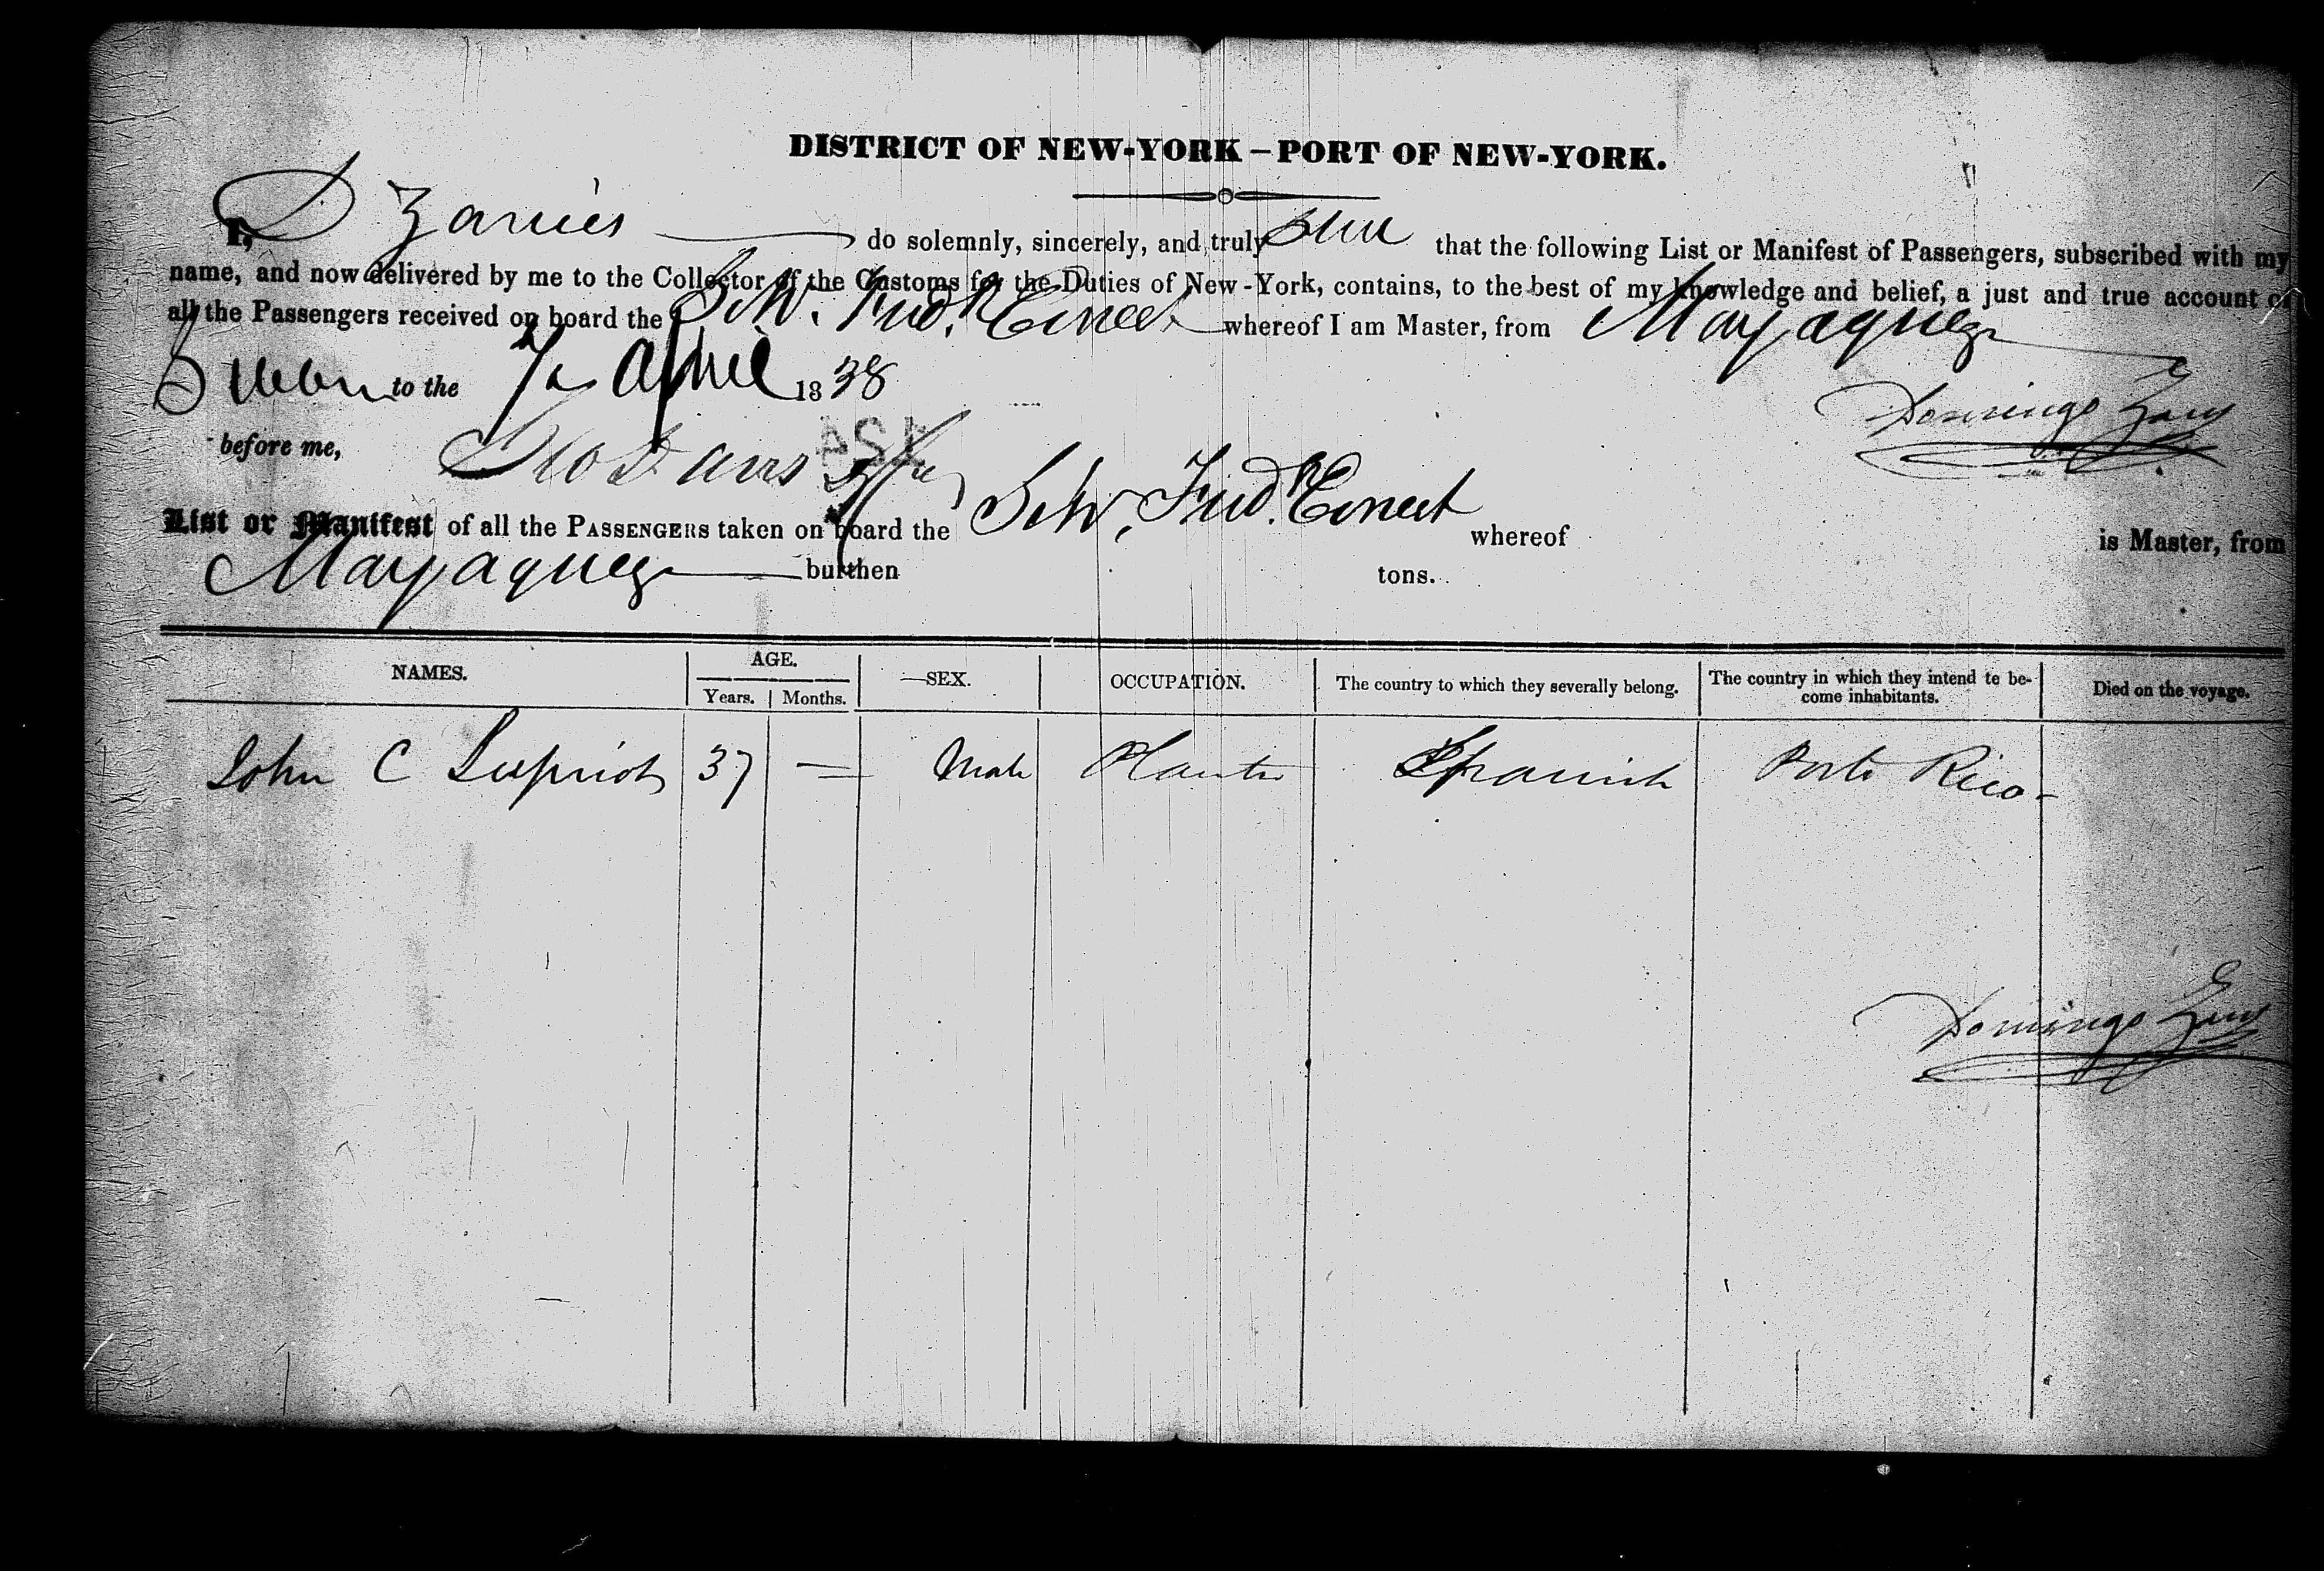 DISTRICT OF NEW-YORK – PORT OF NEW-YORK.
I, D Zaries do solemnly, sincerely, and truly that the following List or Manifest of Passengers, subscribed with my
name, and now delivered by me to the Collector of the Customs for the Duties of New-York, contains, to the best of my knowledge and belief, a just and true account of
all the Passengers received on board the Schr. Fred. Ernest whereof I am Master, from Mayaguez
to the April 1838
Domingo
before me,
List or Manifest of all the PASSENGERS taken on board the Schr. Fred. Ernest whereof is Master, from
Mayaguez burthen tons.
NAMES. AGE. Years. Months. SEX. OCCUPATION. The country to which they severally belong. The country in which they intend to become inhabitants. Died on the voyage.
John C 37 — Male Planter Spanish Porto Rico -
Domingo